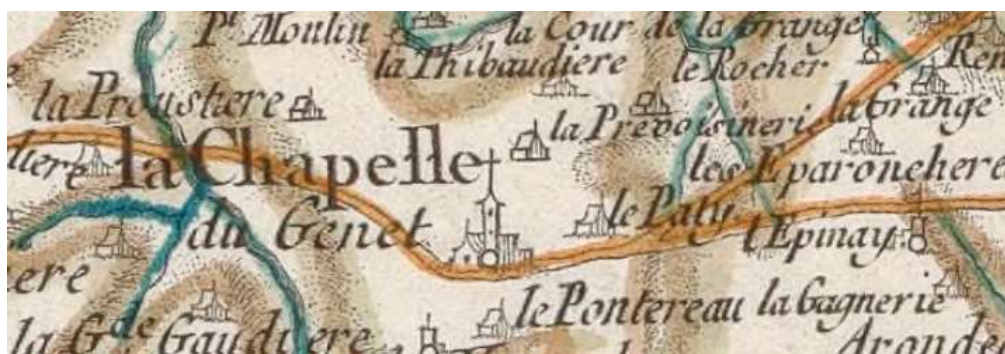 Pt. Moulin
la Cour de la Grange
la Thibaudiere
le Rocher
la Proustiere
la Prevoisineri
la Grange
la Chapelle
du Genet
les Eparonchere
le Paty
l'Epinay
le Pontereau
la Gagnerie
la Gde. Gaudiere